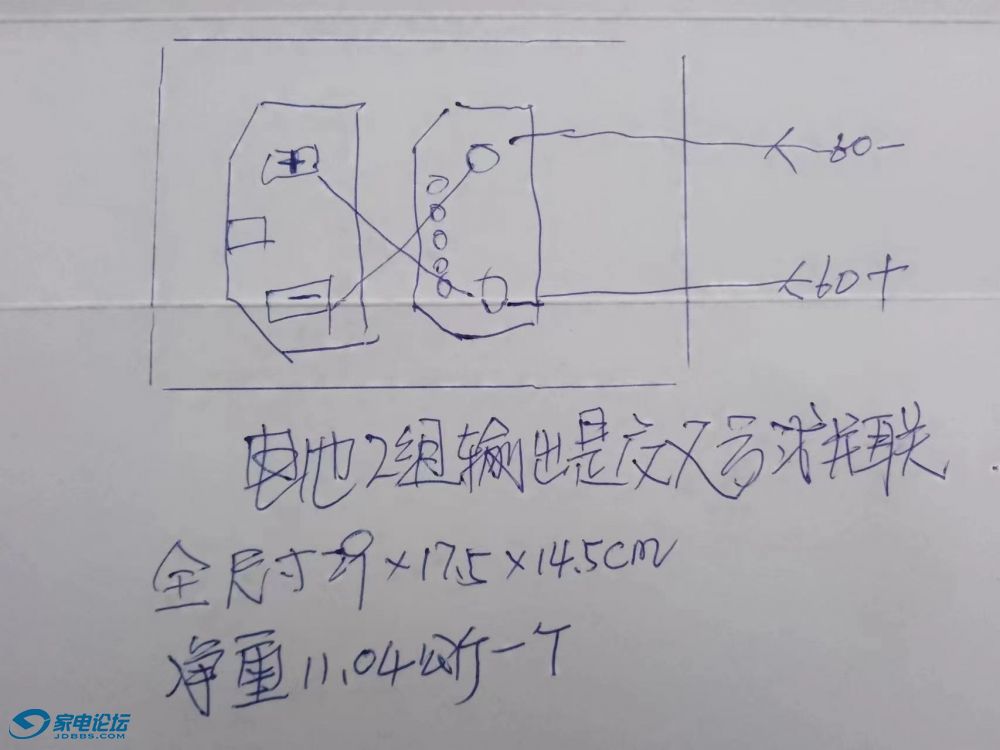 60-
+
-
60+
电池2组输出是交叉方式并联
全尺寸29×17.5×14.5cm
净重11.04公斤一个
家电论坛
JDBBS.COM